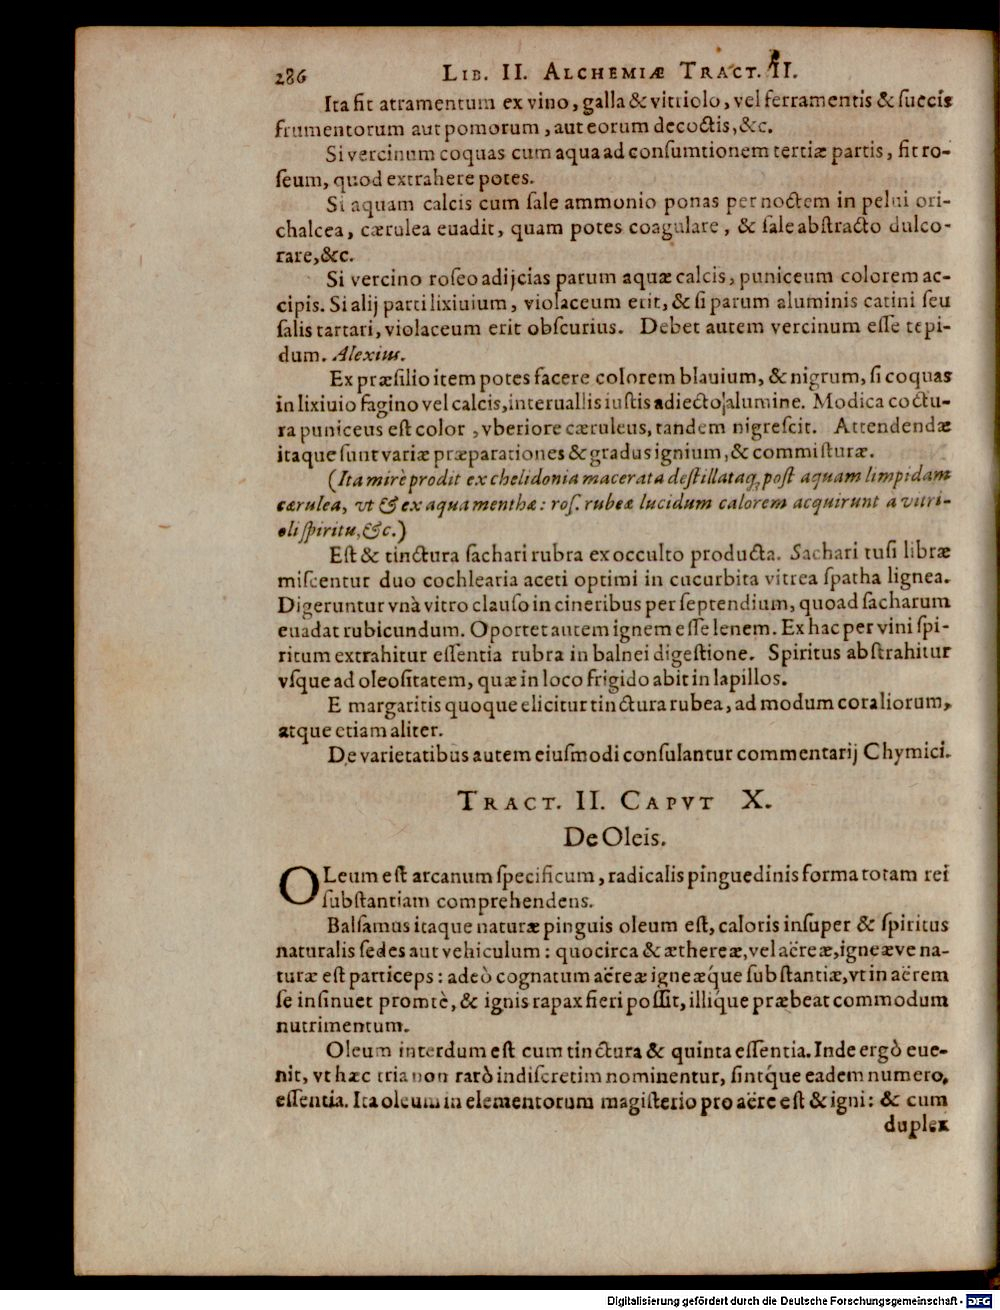 286 LIB. II. ALCHEMIÆ TRACT. II.
Ita fit atramentum ex vino, galla & vitriolo, vel ferramentis & succis
frumentorum aut pomorum, aut eorum decoctis, &c.
Si vercinum coquas cum aqua ad consumtionem tertiæ partis, fit ro-
seum, quod extrahere potes.
Si aquam calcis cum sale ammonio ponas per noctem in pelui ori-
chalcea, cærulea euadit, quam potes coagulare, & sale abstracto dulco-
rare, &c.
Si vercino roseo adijcias parum aquæ calcis, puniceum colorem ac-
cipis. Si alij parti lixiuium, violaceum erit, & si parum aluminis catini seu
salis tartari, violaceum erit obscurius. Debet autem vercinum esse tepi-
dum. Alexius.
Ex præsilio item potes facere colorem blauium, & nigrum, si coquas
in lixiuio fagino vel calcis, interuallis iustis adiecto alumine. Modica coctu-
ra puniceus est color, vberiore cæruleus, tandem nigrescit. Attendendæ
itaque sunt variæ præparationes & gradus ignium, & commisturæ.
(Ita mirè prodit ex chelidonia macerata destillataq; post aquam limpidam
cærulea, vt & ex aqua menthæ: ros. rubeæ lucidum calorem acquirunt a vitri-
oli spiritu, &c.)
Est & tinctura sachari rubra ex occulto producta. Sachari tusi libræ
miscentur duo cochlearia aceti optimi in cucurbita vitrea spatha lignea.
Digeruntur vnà vitro clauso in cineribus per septendium, quoad sacharum
euadat rubicundum. Oportet autem ignem esse lenem. Ex hac per vini spi-
ritum extrahitur essentia rubra in balnei digestione. Spiritus abstrahitur
vsque ad oleositatem, quæ in loco frigido abit in lapillos.
E margaritis quoque elicitur tinctura rubea, ad modum coraliorum,
atque etiam aliter.
De varietatibus autem eiusmodi consulantur commentarij Chymici.
TRACT. II. CAPVT X.
De Oleis.
OLeum est arcanum specificum, radicalis pinguedinis forma totam rei
substantiam comprehendens.
Balsamus itaque naturæ pinguis oleum est, caloris insuper & spiritus
naturalis sedes aut vehiculum: quocirca & æthereæ, vel aëreæ, igneæve na-
turæ est particeps: adeò cognatum aëreæ igneæq́ue substantiæ, vt in aërem
se insinuet promtè, & ignis rapax fieri possit, illiq́ue præbeat commodum
nutrimentum.
Oleum interdum est cum tinctura & quinta essentia. Inde ergò eue-
nit, vt hæc tria non rarò indiscretim nominentur, sintq́ue eadem numero,
essentia. Ita oleum in elementorum magisterio pro aëre est & igni: & cum
duplex
Digitalisierung gefördert durch die Deutsche Forschungsgemeinschaft - DFG